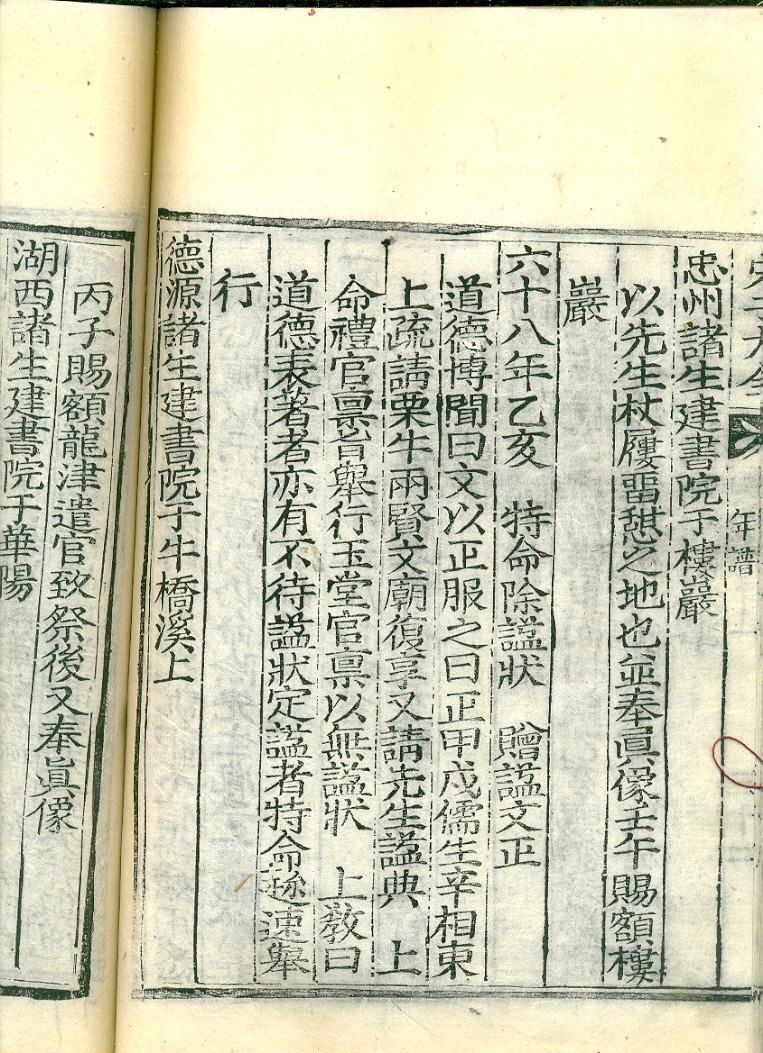 宋子大全
年譜
忠州諸生建書院于樓巖
以先生杖屨畱憇之地也並奉眞像壬午賜額樓
巖
六十八年乙亥 特命除諡狀 贈諡文正
道德博聞曰文以正服之曰正甲戌儒生辛相東
上疏請栗牛兩賢文廟復享又請先生諡典 上
命禮官稟旨舉行玉堂官稟以無諡狀 上敎曰
道德表著者亦有不待諡狀定諡者特命趂速舉
行
德源諸生建書院于牛橋溪上
丙子賜額龍津遣官致祭後又奉眞像
湖西諸生建書院于華陽